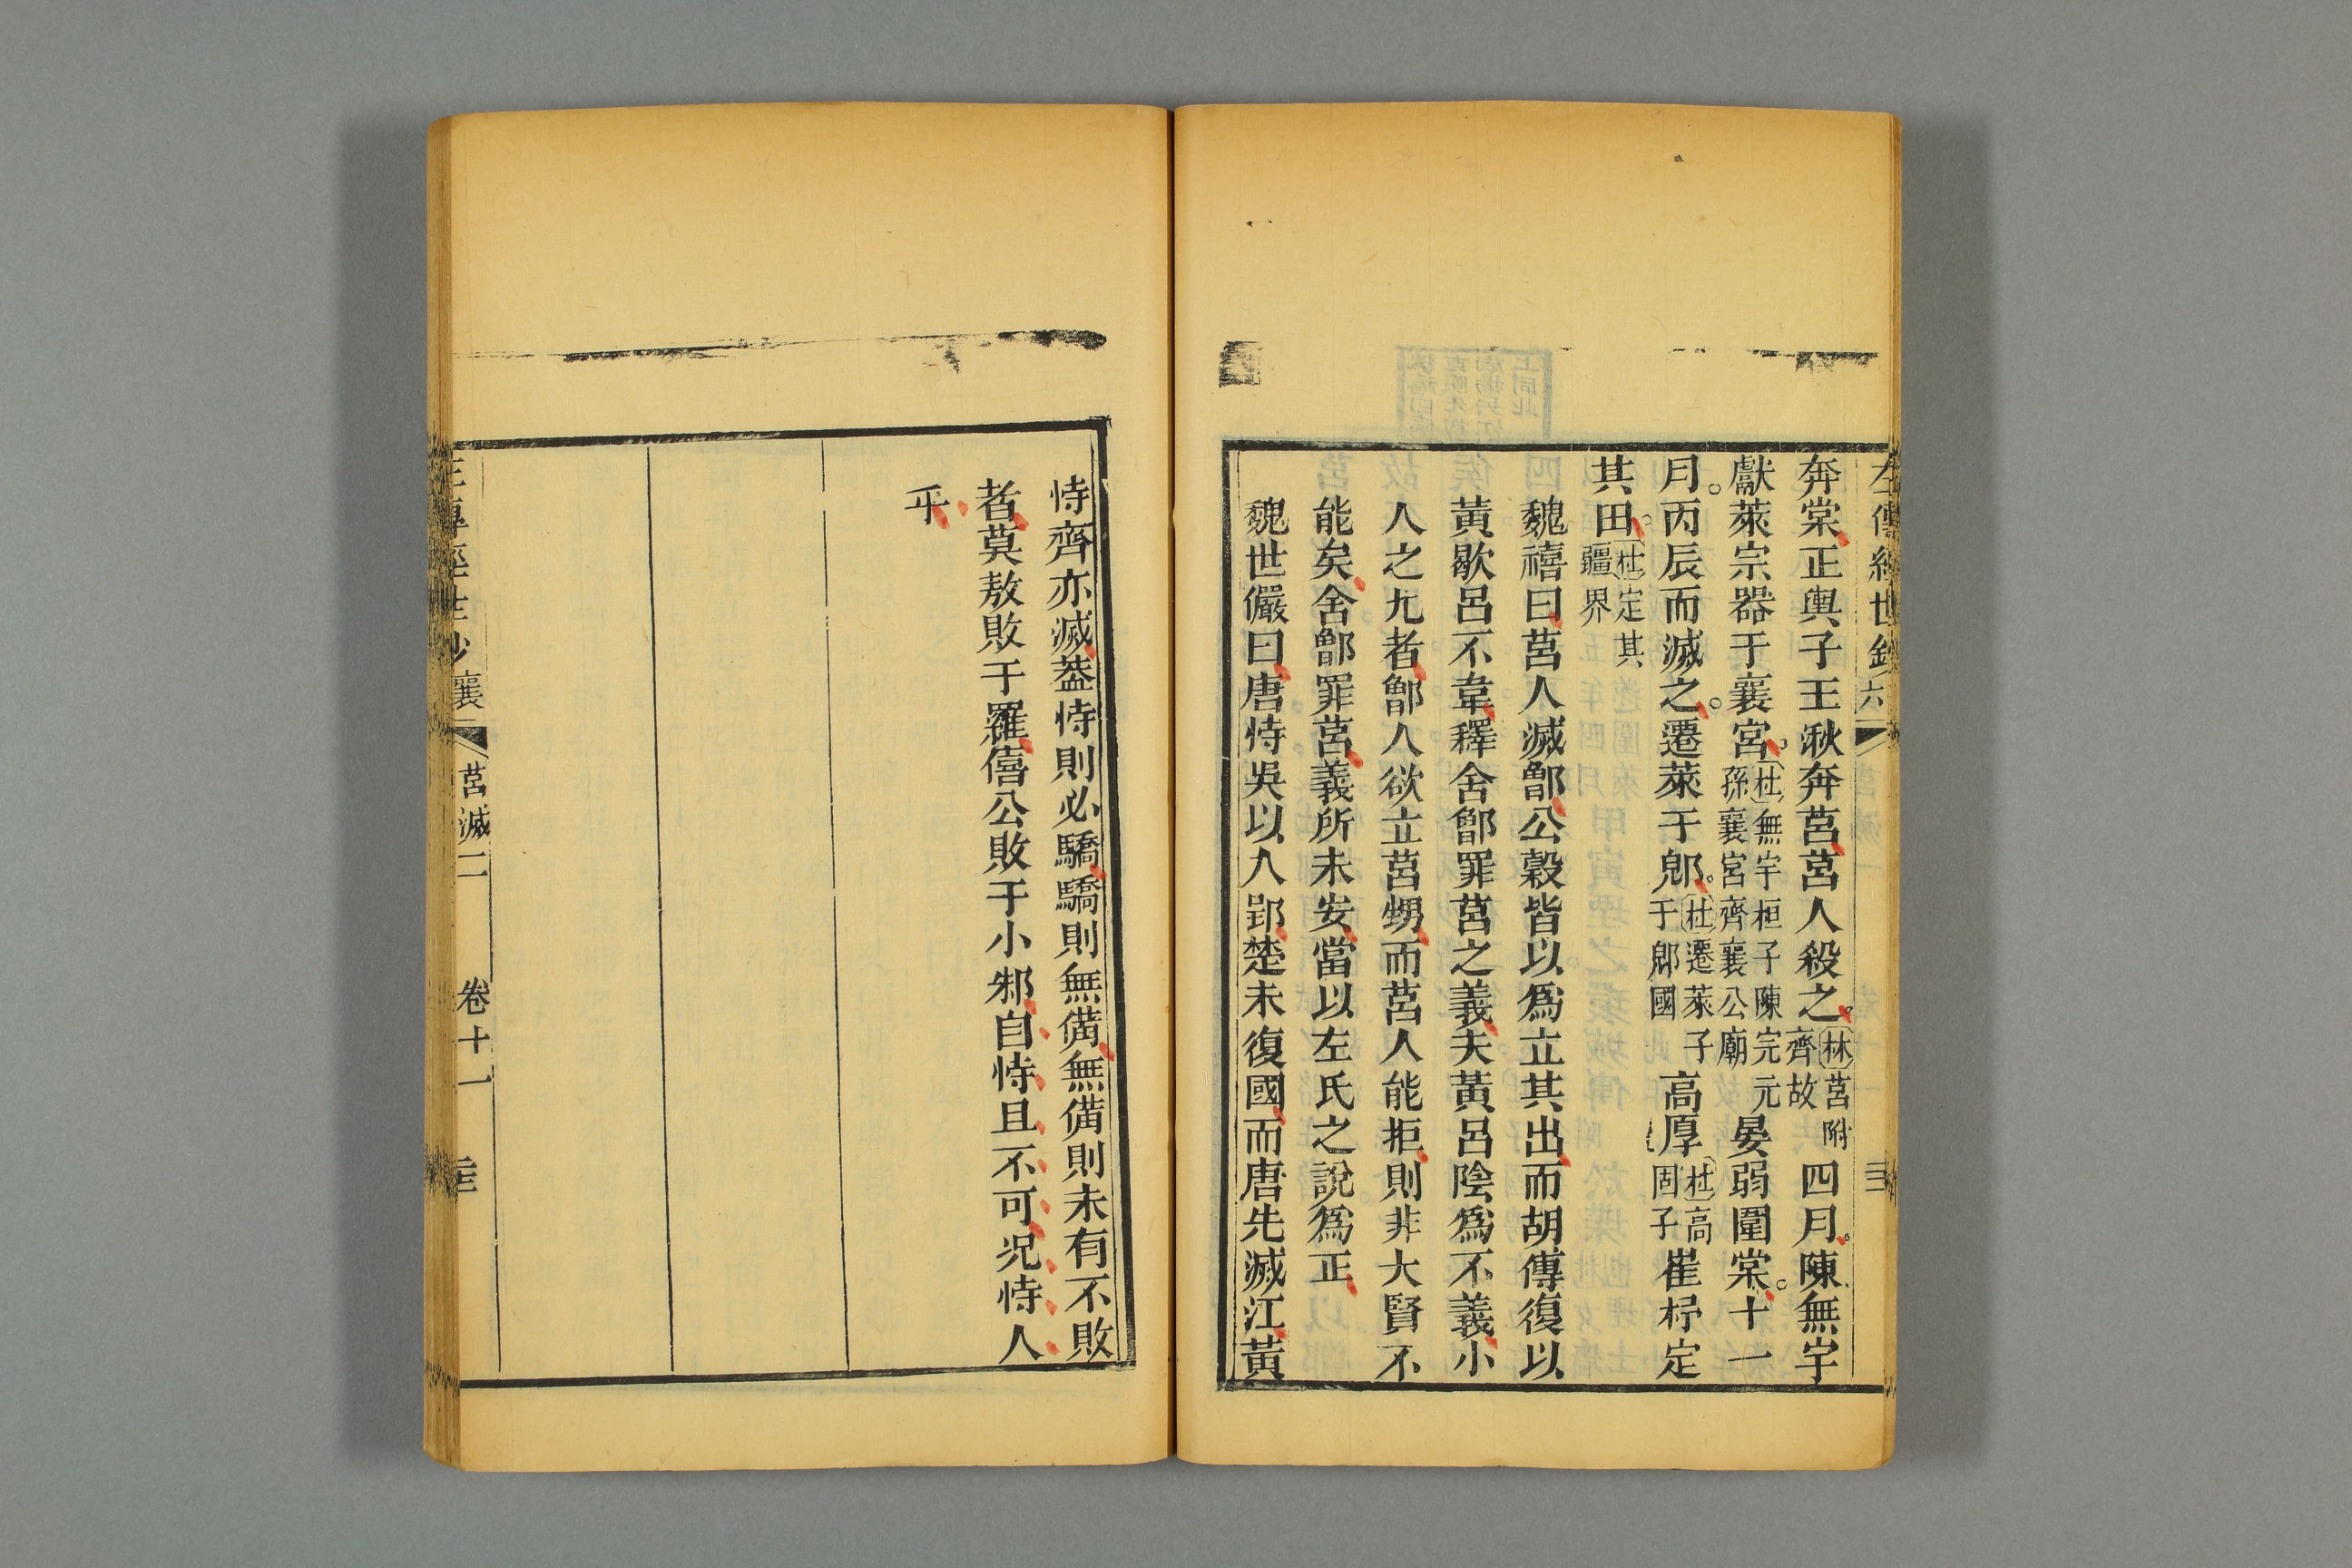 左傳經世鈔 六
奔棠正輿子王湫奔莒莒人殺之。林莒附齊故四月。陳無宇
獻萊宗器于襄宮。杜無宇桓子陳完元孫襄宮齊襄公廟晏弱圍棠。十一
月。丙辰而滅之。遷萊于郳。杜遷萊子于郳國高厚杜高固子崔杼定
其田。杜定其疆界
魏禧曰莒人滅鄫公穀皆以爲立其出而胡傳復以
黃歇呂不韋釋舍鄫罪莒之義夫黃呂陰爲不義小
人之尤者鄫人欲立莒甥而莒人能拒則非大賢不
能矣舍鄫罪莒義所未安當以左氏之說爲正
魏世儼曰唐恃吳以入郢楚未復國而唐先滅江黃
恃齊亦滅葢恃則必驕驕則無備無備則未有不敗
者莫敖敗于羅僖公敗于小邾自恃且不可况恃人
乎
襄
莒滅二
卷十一